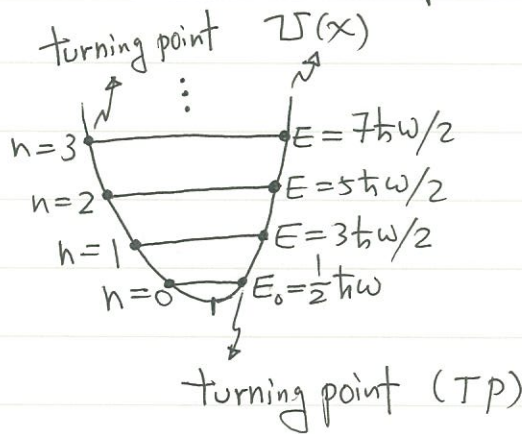 turning point U(x)
⋮
n=3 E=7ℏω/2
n=2 E=5ℏω/2
n=1 E=3ℏω/2
n=0 E₀=½ℏω
turning point (TP)